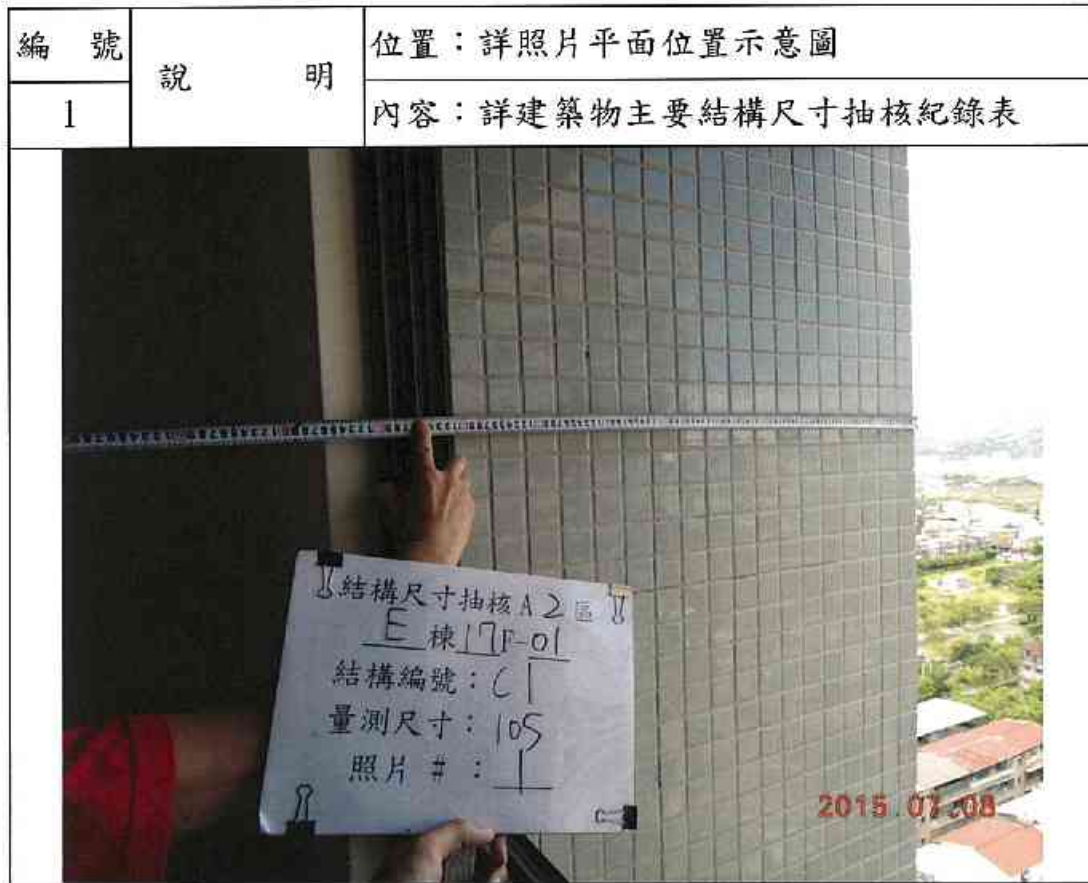 編 號
1
說 明
位置：詳照片平面位置示意圖
內容：詳建築物主要結構尺寸抽核紀錄表
結構尺寸抽核A2區
E棟17F-01
結構編號：C1
量測尺寸：105
照片 #：1
2015.07.08